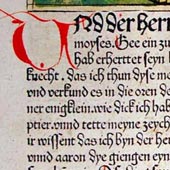 UNd der herr
moyses. Gee ein zu
hab erherttet seyn
knecht. das ich thun dyse
vnd verkund es in die oren de
ner enigklein. wie dick ich hab
ptier. vnnd tette meyne zeych
ir wissent das ich byn der her
vnnd aaron dye giengen eyn